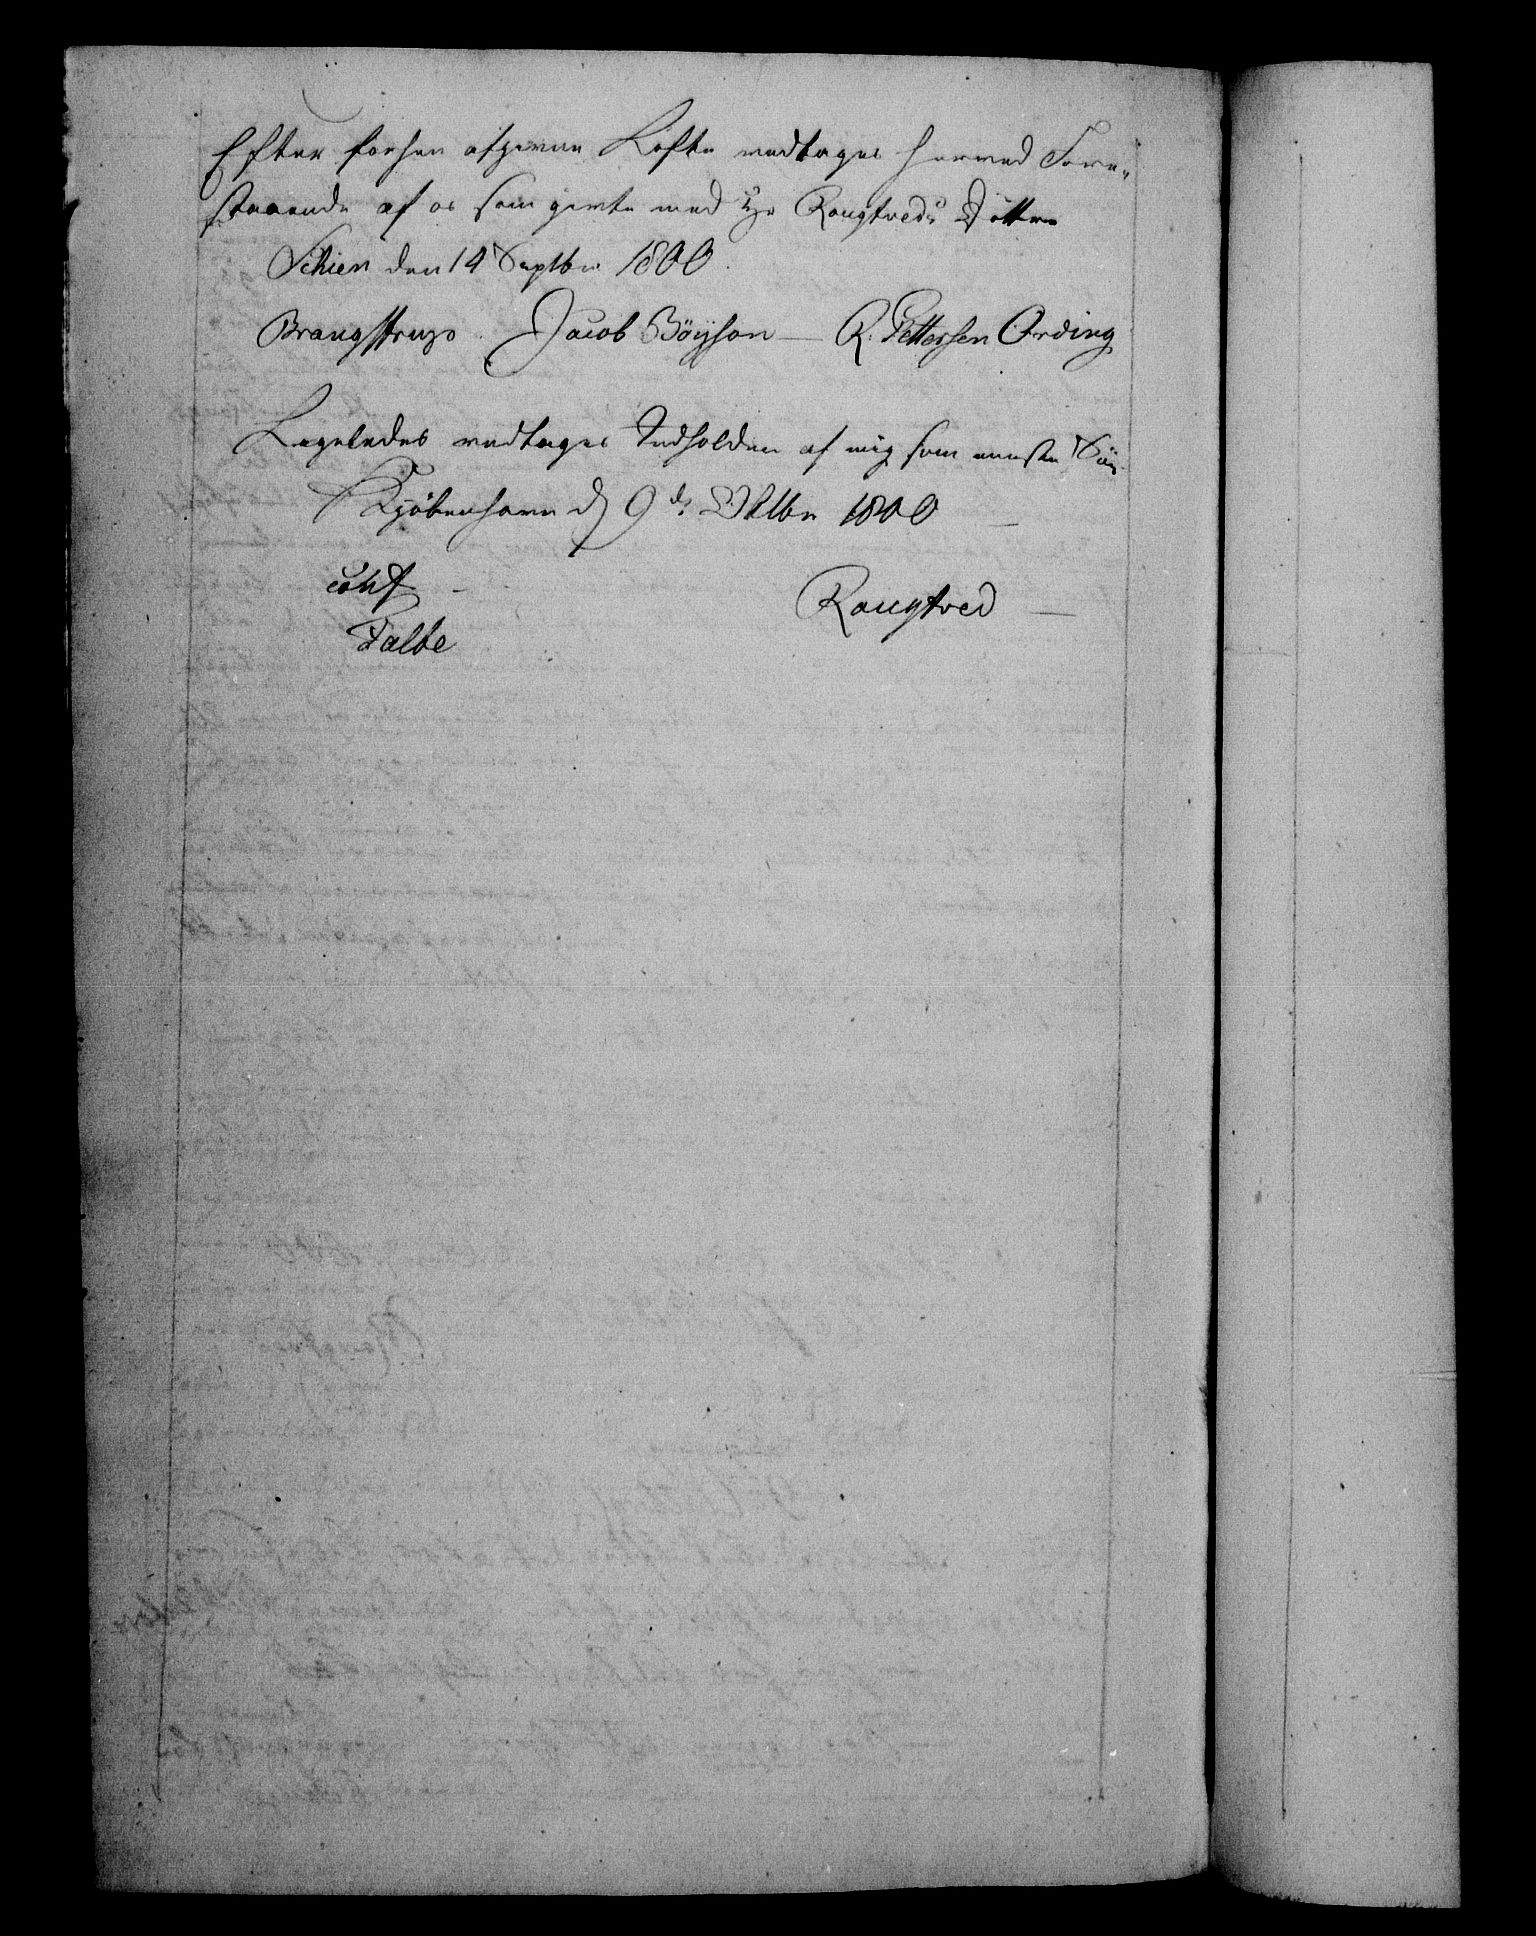 Efter forhen afgivne Löfte vedtages herved Fore-
staaende af os som givte med Hr Rougtveds Döttre
Schien den 14 Septbr 1800.
Brangstrup Jacob Böyson — R. Pettersen Ording
Ligeledes vedtages Indholden af mig som eneste Sön
Kjöbenhavn d 9de Octbr 1800 —
conf
Rougtved —
Falbe